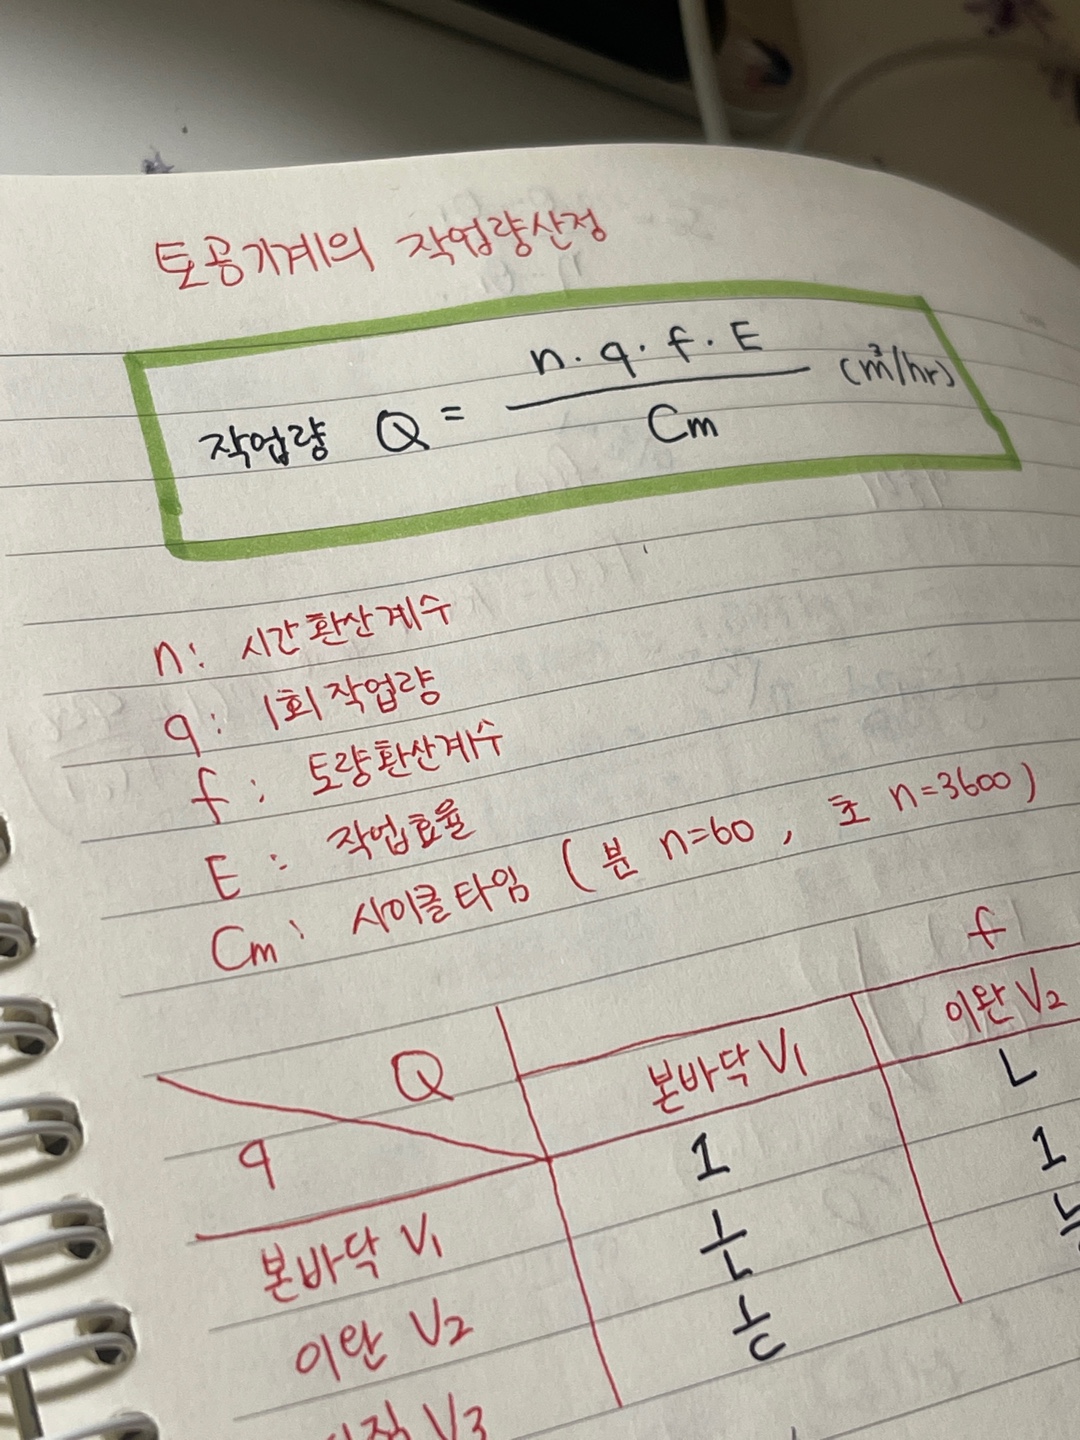 토공기계의 작업량산정
작업량 Q = n·q·f·E / Cm (m³/hr)
n: 시간환산계수
q: 1회 작업량
f: 토량환산계수
E: 작업효율
Cm: 사이클타임 (분 n=60, 초 n=3600)
f
Q 본바닥 V1 이완 V2
q
본바닥 V1 1 L
이완 V2 1/L 1
V3 1/C